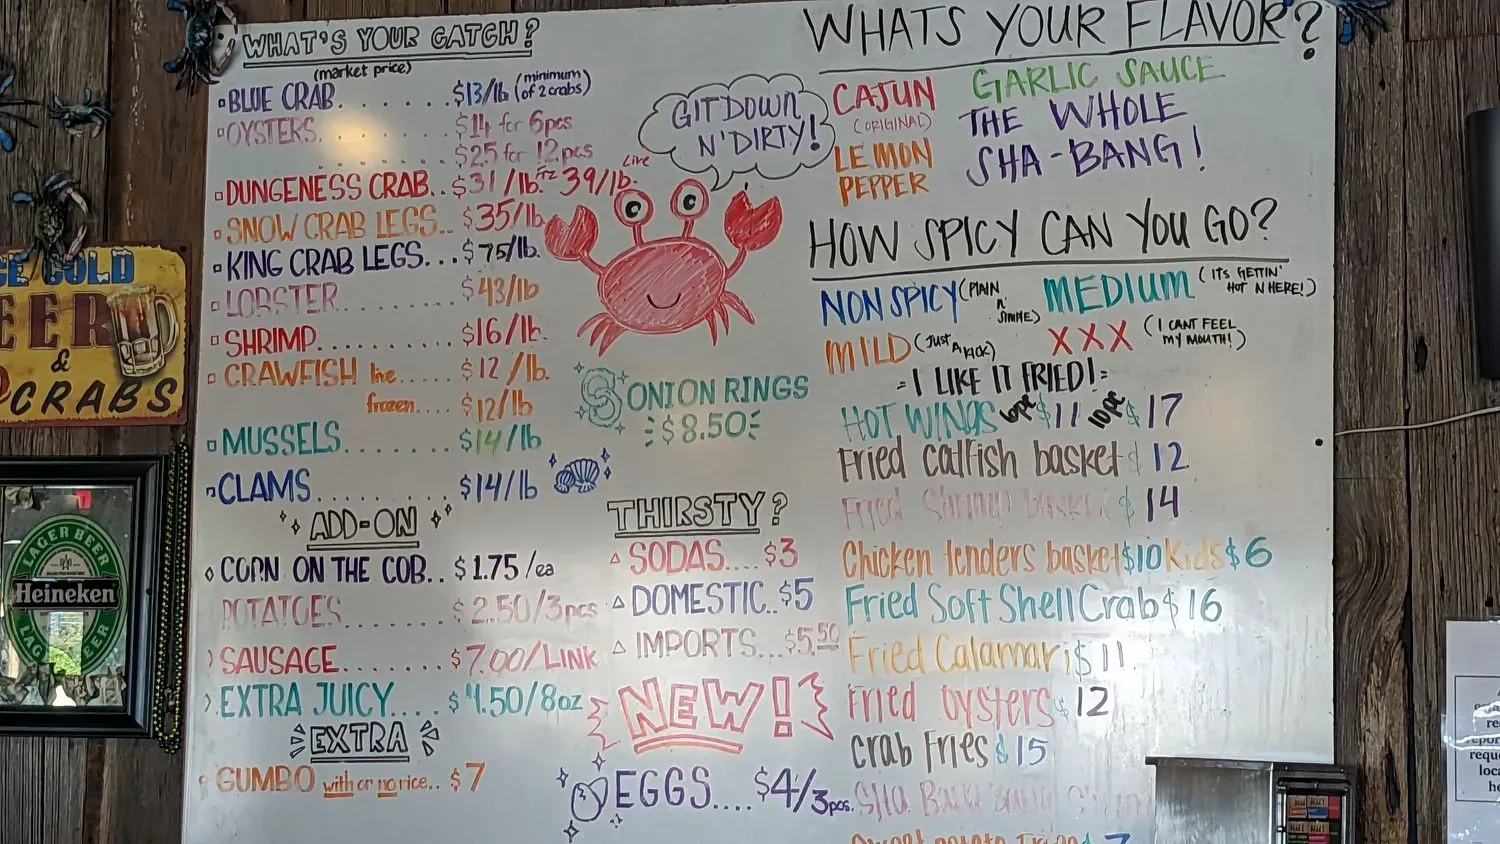 WHAT'S YOUR CATCH?
(market price)
BLUE CRAB........$13/lb (minimum of 2 crabs)
OYSTERS........$14 for 6pcs
........$25 for 12pcs
DUNGENESS CRAB..$31/lb. FRZ 39/lb. Live
SNOW CRAB LEGS..$35/lb
KING CRAB LEGS...$75/lb.
LOBSTER........$43/lb
SHRIMP..........$16/lb.
CRAWFISH live....$12/lb.
frozen....$12/lb
MUSSELS........$14/lb
CLAMS..........$14/lb
ADD-ON
CORN ON THE COB..$1.75/ea
POTATOES........$2.50/3pcs
SAUSAGE........$7.00/LINK
EXTRA JUICY....$4.50/8oz
EXTRA
GUMBO with or no rice..$7
GIT DOWN
N' DIRTY!
ONION RINGS
$8.50
THIRSTY?
SODAS....$3
DOMESTIC..$5
IMPORTS...$5.50
NEW!
EGGS....$4/3pcs.
WHATS YOUR FLAVOR?
CAJUN
(ORIGINAL)
LEMON
PEPPER
GARLIC SAUCE
THE WHOLE
SHA-BANG!
HOW SPICY CAN YOU GO?
NON SPICY (PLAIN N' SIMPLE)
MEDIUM (IT'S GETTIN' HOT N HERE!)
MILD (JUST A KICK)
XXX (I CANT FEEL MY MOUTH!)
=I LIKE IT FRIED!=
HOT WINGS 6pc $11 10pc $17
Fried catfish basket $12
Fried Shrimp basket $14
Chicken tenders basket $10 Kids $6
Fried Soft Shell Crab $16
Fried Calamari $11
Fried oysters $12
Crab Fries $15
Sha Bang Bang
ICE COLD
BEER
&
CRABS
LAGER BEER
Heineken
LAGER BEER